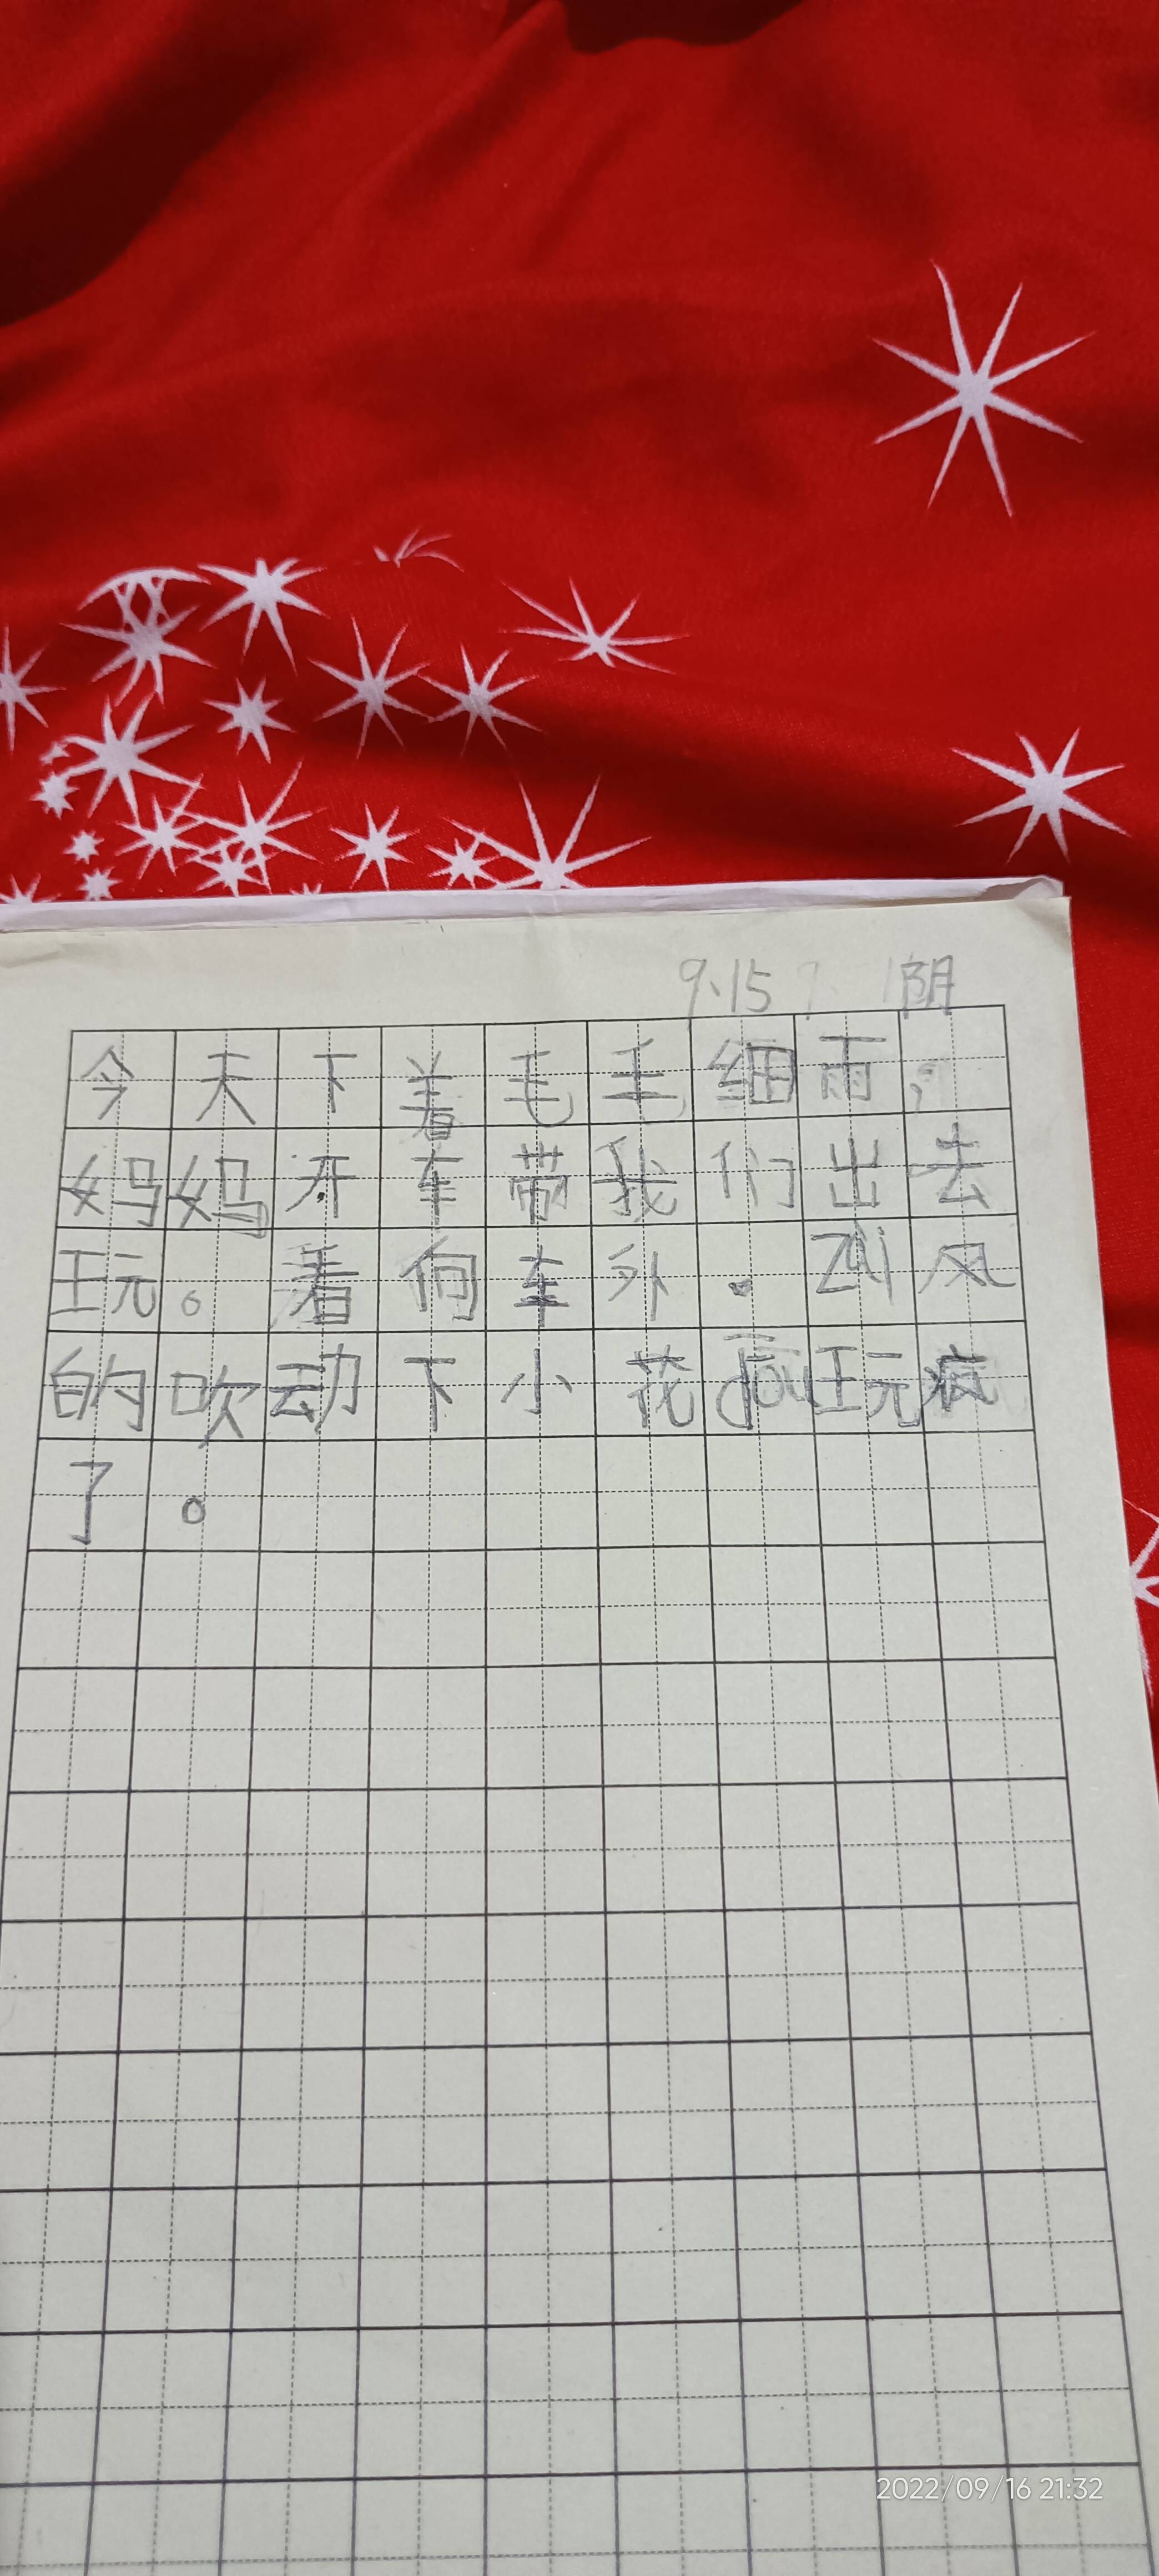 9.15 阴
今天下着毛毛细雨,
妈妈开车带我们出去
玩。看向车外.Zai风
的吹动下小花dōu玩疯
了。
2022/09/16 21:32